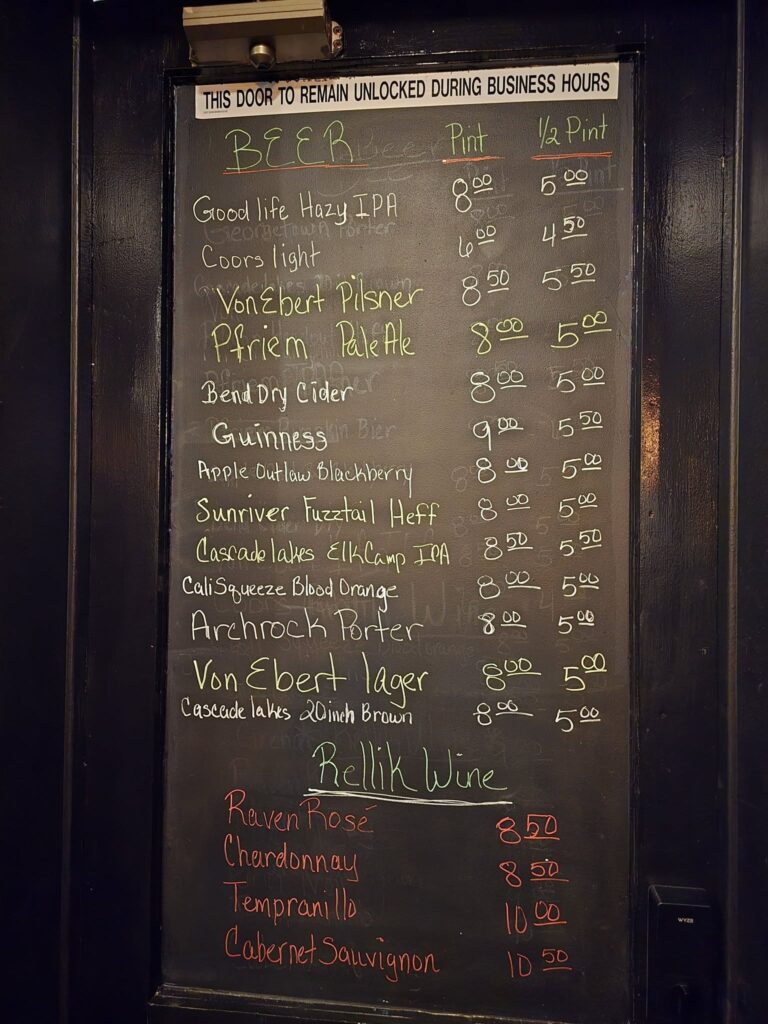 THIS DOOR TO REMAIN UNLOCKED DURING BUSINESS HOURS
BEER Pint 1/2 Pint
Good life Hazy IPA 8 00 5 00
Coors light 6 00 4 50
VonEbert Pilsner 8 50 5 50
Pfriem Pale Ale 8 00 5 00
Bend Dry Cider 8 00 5 00
Guinness 9 00 5 50
Apple Outlaw Blackberry 8 00 5 00
Sunriver Fuzztail Heff 8 00 5 00
Cascade lakes Elk Camp IPA 8 50 5 50
Cali Squeeze Blood Orange 8 00 5 00
Archrock Porter 8 00 5 00
Von Ebert lager 8 00 5 00
Cascade lakes 20 inch Brown 8 00 5 00
Rellik Wine
Raven Rosé 8 50
Chardonnay 8 50
Tempranillo 10 00
Cabernet Sauvignon 10 50
WYZE